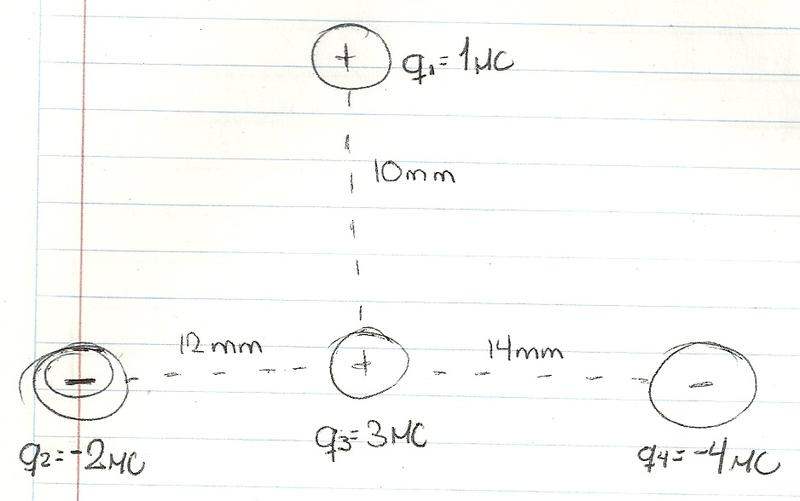 + q₁=1μC
10mm
12mm 14mm
- + -
q₂=-2μC q₃=3μC q₄=-4μC